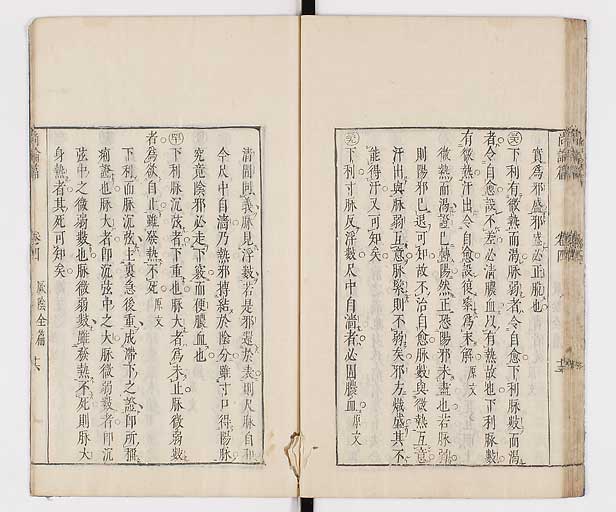 尚論篇
卷四
實爲邪盛邪盛必正脱也
下利有微熱而渴脉弱者令自愈下利脉數而渴
者令自愈設不差必淸膿血以有熱故也下利脉數
有微熱汗出令自愈設復緊爲未解原文
微熱而渴證已轉陽然正恐陽邪未盡也若脉弱
則陽邪已退可知故不治自愈脉數與微熱互意
汗出與脉弱互意脉緊則不弱矣邪方熾盛其不
能得汗又可知矣
下利寸脉反浮數尺中自濇者必圊膿血原文
淸圊同義脉見浮數若是邪還於表則尺脉自和
今尺中自濇乃熱邪摶結於陰分雖寸口得陽脉
究竟陰邪必走下竅而便膿血也
下利脉沉弦者下重也脉大者爲未止脉微弱數
者爲欲自止雖發熱不死原文
下利而脉沉弦主裏急後重成滯下之證即所稱
痢證也脉大者即沉弦中之大脉微弱數者即沉
弦中之微弱數也脉微弱數雖發熱不死則脉大
身熱者其死可知矣
尚論篇
卷四
厥陰全篇